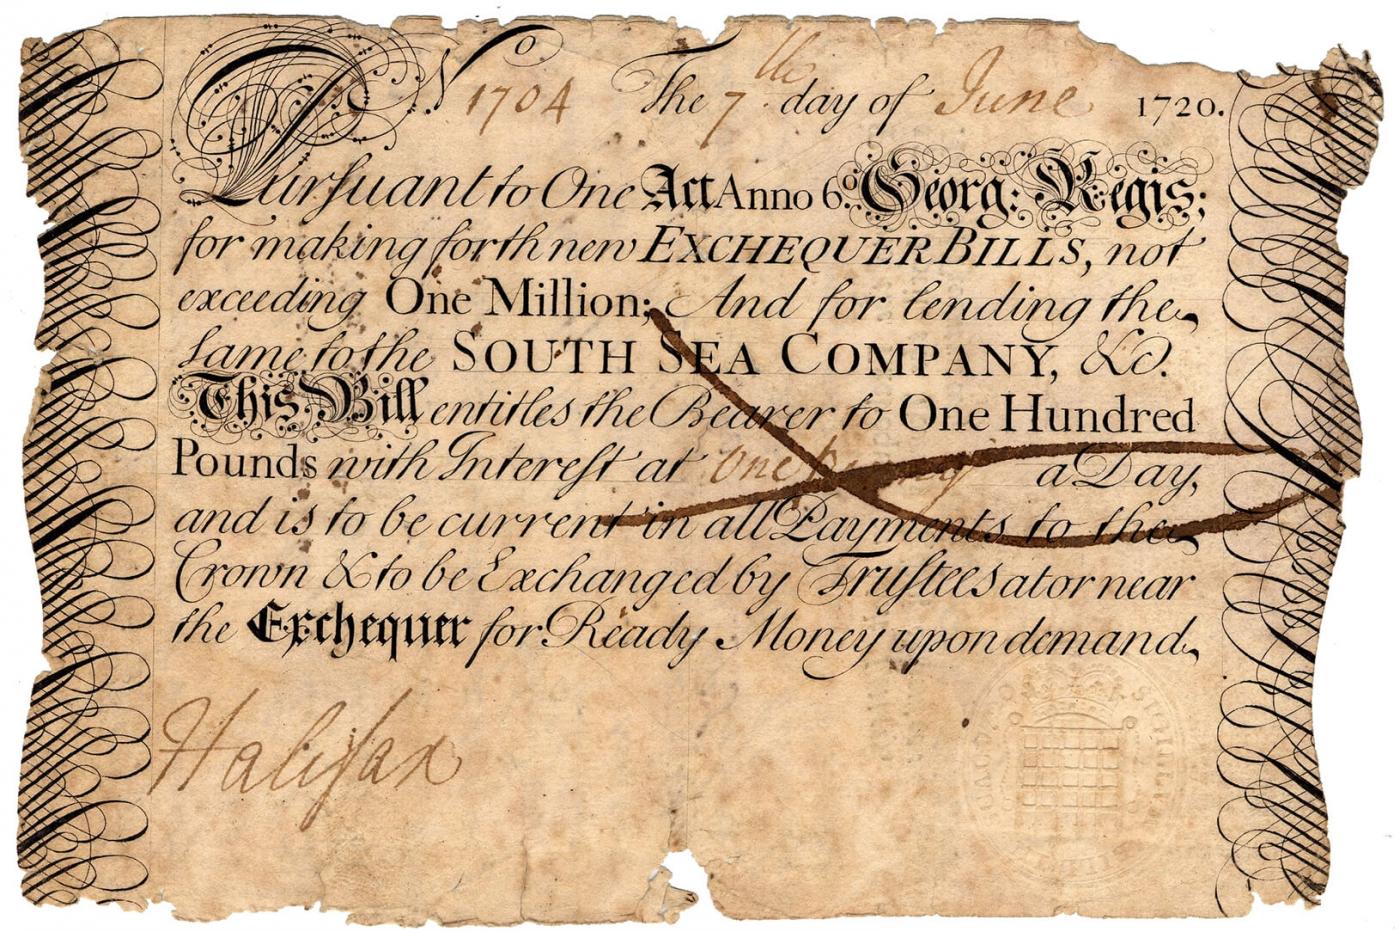 No 1704 The 7th day of June 1720.
Pursuant to One Act Anno 6o. Georg: Regis;
for making forth new EXCHEQUER BILLS, not
exceeding One Million; And for lending the
same to the SOUTH SEA COMPANY, &c.
This Bill entitles the Bearer to One Hundred
Pounds with Interest at One Penny a Day,
and is to be current in all Payments to the
Crown & to be Exchanged by Trustees at or near
the Exchequer for Ready Money upon demand
Halifax